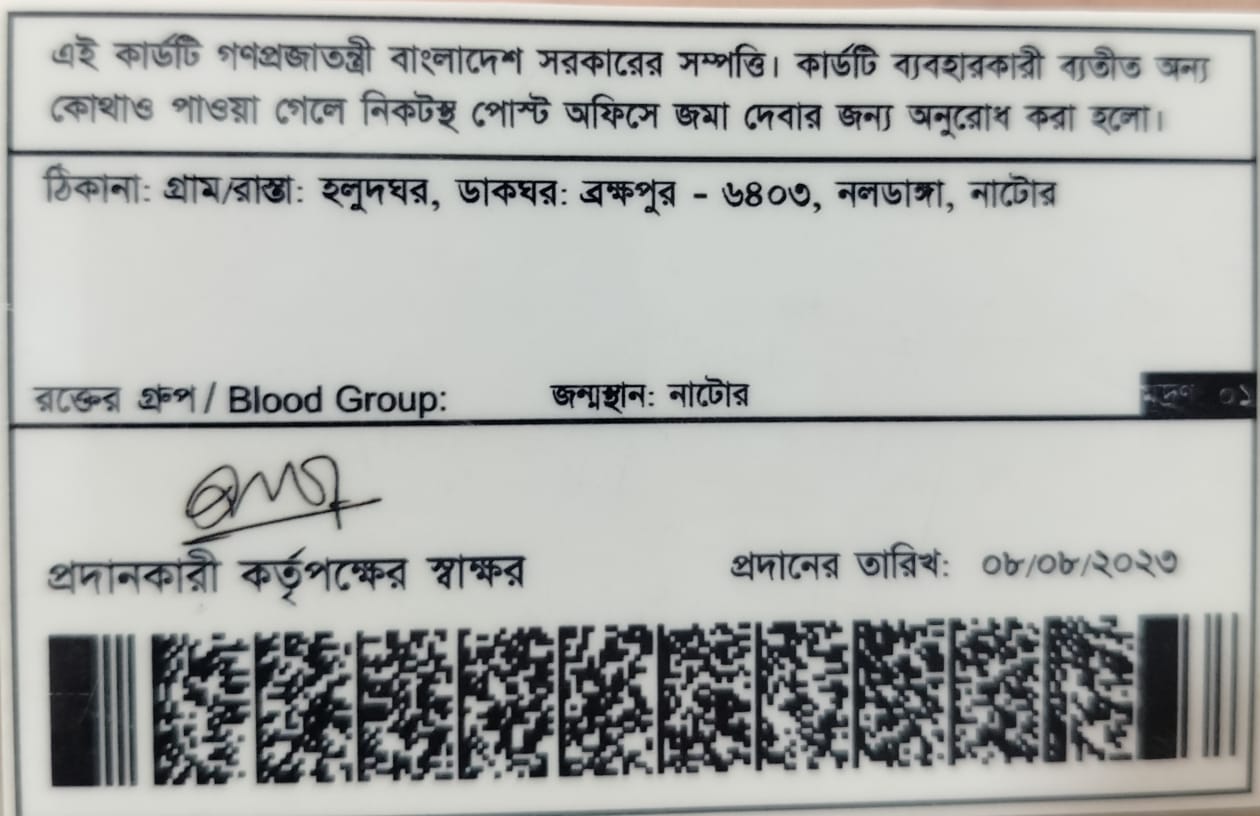 এই কার্ডটি গণপ্রজাতন্ত্রী বাংলাদেশ সরকারের সম্পত্তি। কার্ডটি ব্যবহারকারী ব্যতীত অন্য
কোথাও পাওয়া গেলে নিকটস্থ পোস্ট অফিসে জমা দেবার জন্য অনুরোধ করা হলো।
ঠিকানা: গ্রাম/রাস্তা: হলুদঘর, ডাকঘর: ব্রক্ষপুর - ৬৪০৩, নলডাঙ্গা, নাটোর
রক্তের গ্রুপ / Blood Group: জন্মস্থান: নাটোর মুদ্রণ: ০১
প্রদানকারী কর্তৃপক্ষের স্বাক্ষর প্রদানের তারিখ: ০৮/০৮/২০২৩